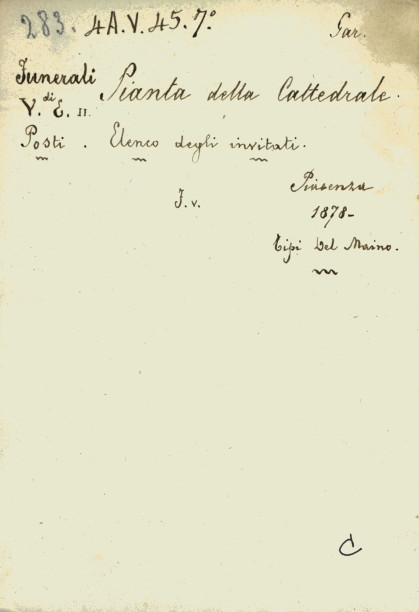 283. 4 A. V. 45. 7º Gar.
Funerali
di
V. E. II.
Pianta della Cattedrale.
Posti. Elenco degli invitati.
Piacenza
F. v.
1878-
Tipi Del Maino.
C